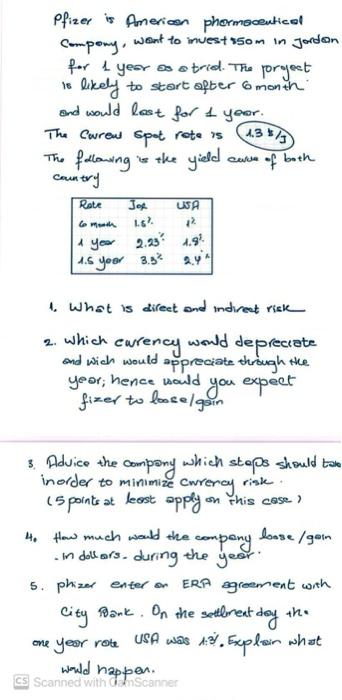 Pfizer is American pharmaceutical
Company, want to invest $50m in Jordan
for 1 year as a trial. The porject
is likely to start after 6 month
and would last for 1 year.
The Curent Spot rate is 1.3 $/J
The following is the yield curve of both
country
Rate Jor USA
6 month 1.6% 1%
1 year 2.23% 1.9%
1.5 year 3.3% 2.4%
1. What is direct and indirect risk
2. which currency would depreciate
and wich would appreciate through the
year; hence would you expect
fizer to loose/gain
3. Advice the company which steps should take
inorder to minimize currency risk.
(5 points at least apply on this case)
4. How much would the company loose/gain
- in dollars - during the year.
5. phizer enter an ERA agreement with
City Bank. On the settlment day the
one year rate USA was 1.3%. Explain what
would happen.
CS Scanned with CamScanner